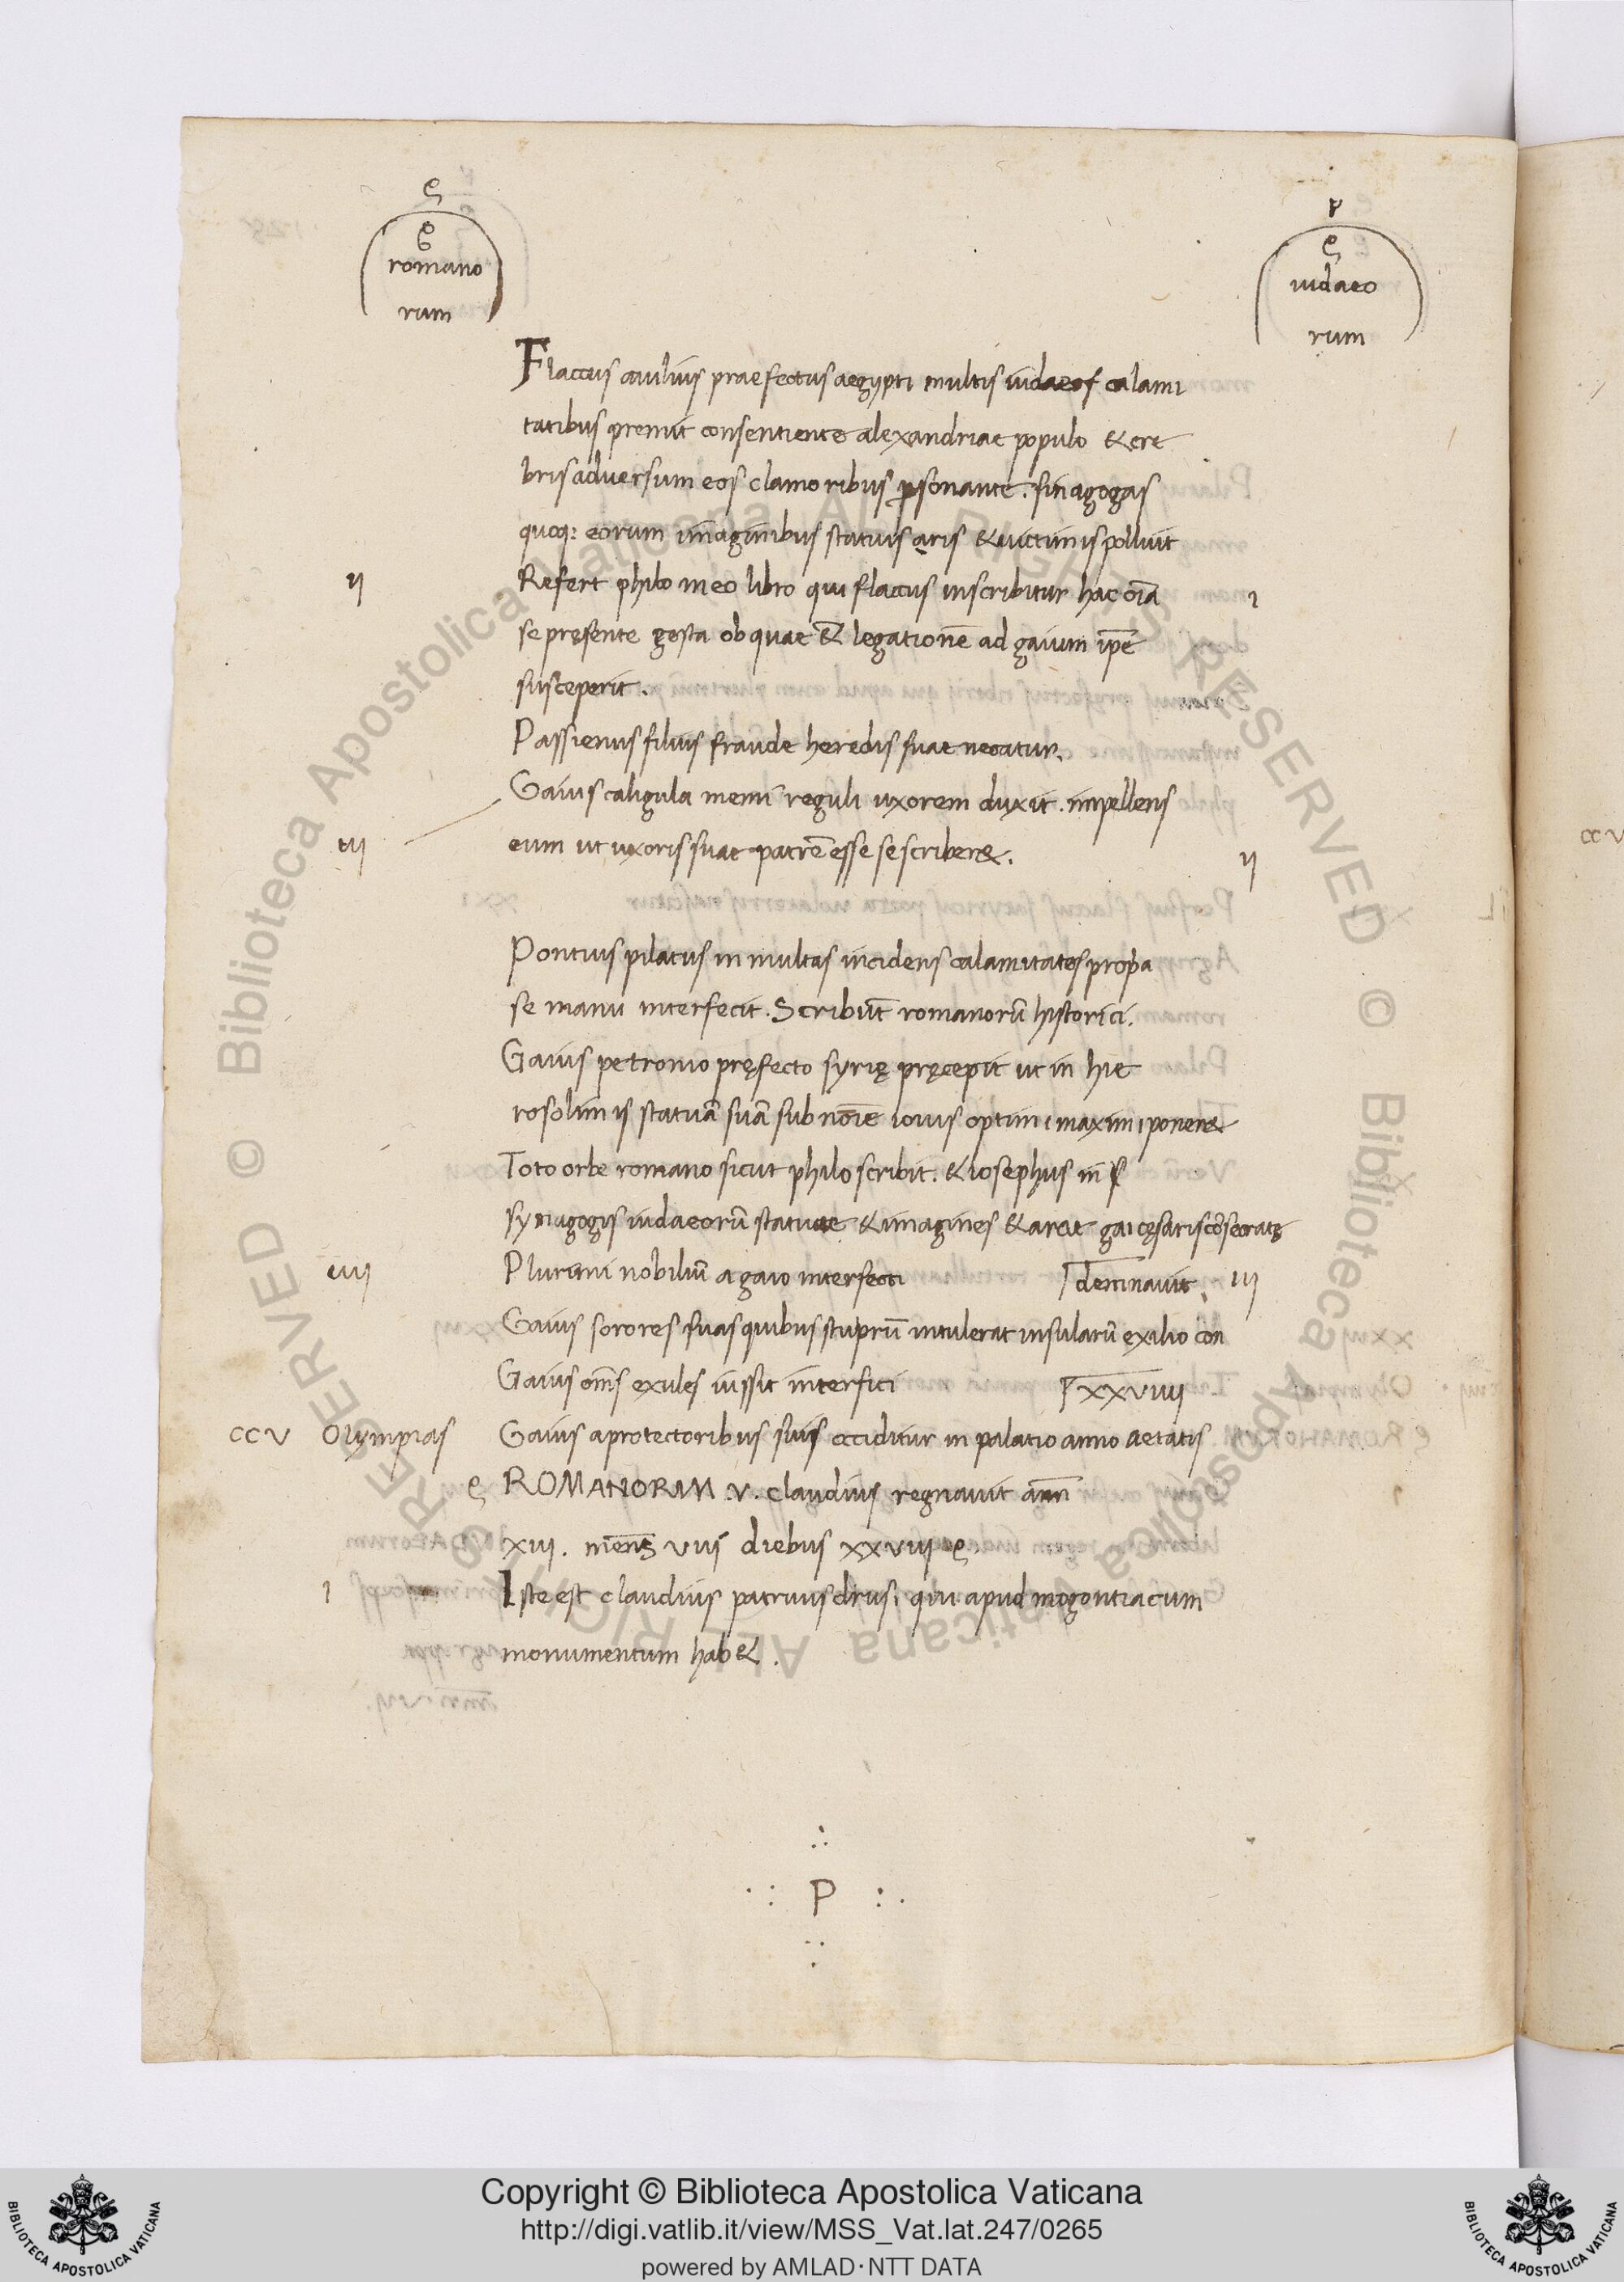 romano
rum
iudaeo
rum
Flaccus aiulius praefectus aegypti multis iudaeos calami
tatibus premit consentiente alexandriae populo & cre
bris adversum eos clamoribus ꝑsonante. sinagogas
quoq: eorum imaginibus statuis aris & victimis polluit
ii Refert philo in eo libro qui flaccus inscribitur hac oīa i
se pręsente gesta ob quae & legationē ad gaium ip̄e
susceperit.
Passienus filius fraude heredis suae necatur.
Gaius caligula memī reguli uxorem duxit. impellens
iii eum ut uxoris suae patrē esse se scriber&. ii
Pontius pilatus in multas incidens calamitates propa
se manu interfecit. Scribūt romanorū historici.
Gaius petronio pręfecto syrię pręcepit ut in hie
rosolimis statuā suā sub noīe iouis optimi maximi poner&
Toto orbe romano sicut philo scribit. & iosephus in
synagogis iudaeorū statuae & imagines & arae gai cęsaris cōsecratę
iiii Plurimi nobiliū a gaio interfecti demnavit. iii
Gaius sorores suas quibus stuprū intulerat insularū exilio con
Gaius om̄s exules iussit interfici XXVIIII
CCV Olympias Gaius a protectoribus suis occiditur in palatio anno aetatis
ROMANORVM .V. claudius regnavit ann̄
XIII. mens̄ VIII diebus XXVIII
i Iste est claudius patruus drusi qui apud mogontiacum
monumentum hab&.
P
Copyright © Biblioteca Apostolica Vaticana
http://digi.vatlib.it/view/MSS_Vat.lat.247/0265
powered by AMLAD·NTT DATA
BIBLIOTECA APOSTOLICA VATICANA
BIBLIOTECA APOSTOLICA VATICANA